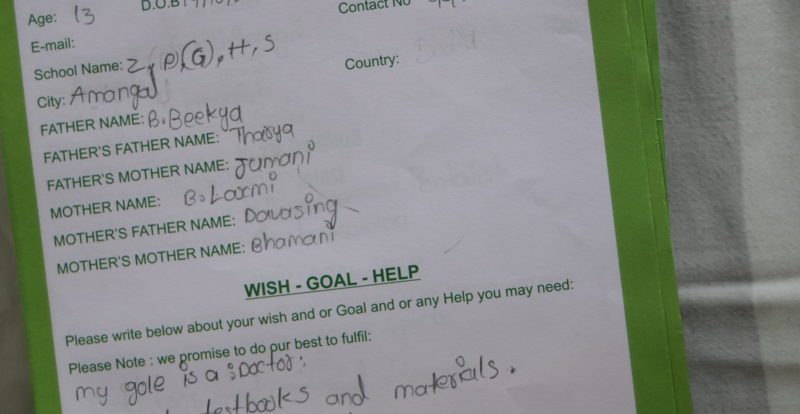 Age: 13 D.O.B Contact No
E-mail:
School Name: Z, P,(G), H, S
Country:
City: Amangal
FATHER NAME: B. Beekya
FATHER'S FATHER NAME: Tharya
FATHER'S MOTHER NAME: Jumani
MOTHER NAME: B. Laxmi
MOTHER'S FATHER NAME: Davasing
MOTHER'S MOTHER NAME: Bhamani
WISH - GOAL - HELP
Please write below about your wish and or Goal and or any Help you may need:
Please Note : we promise to do our best to fulfil:
my gole is a : Doctor :
textbooks and materials.